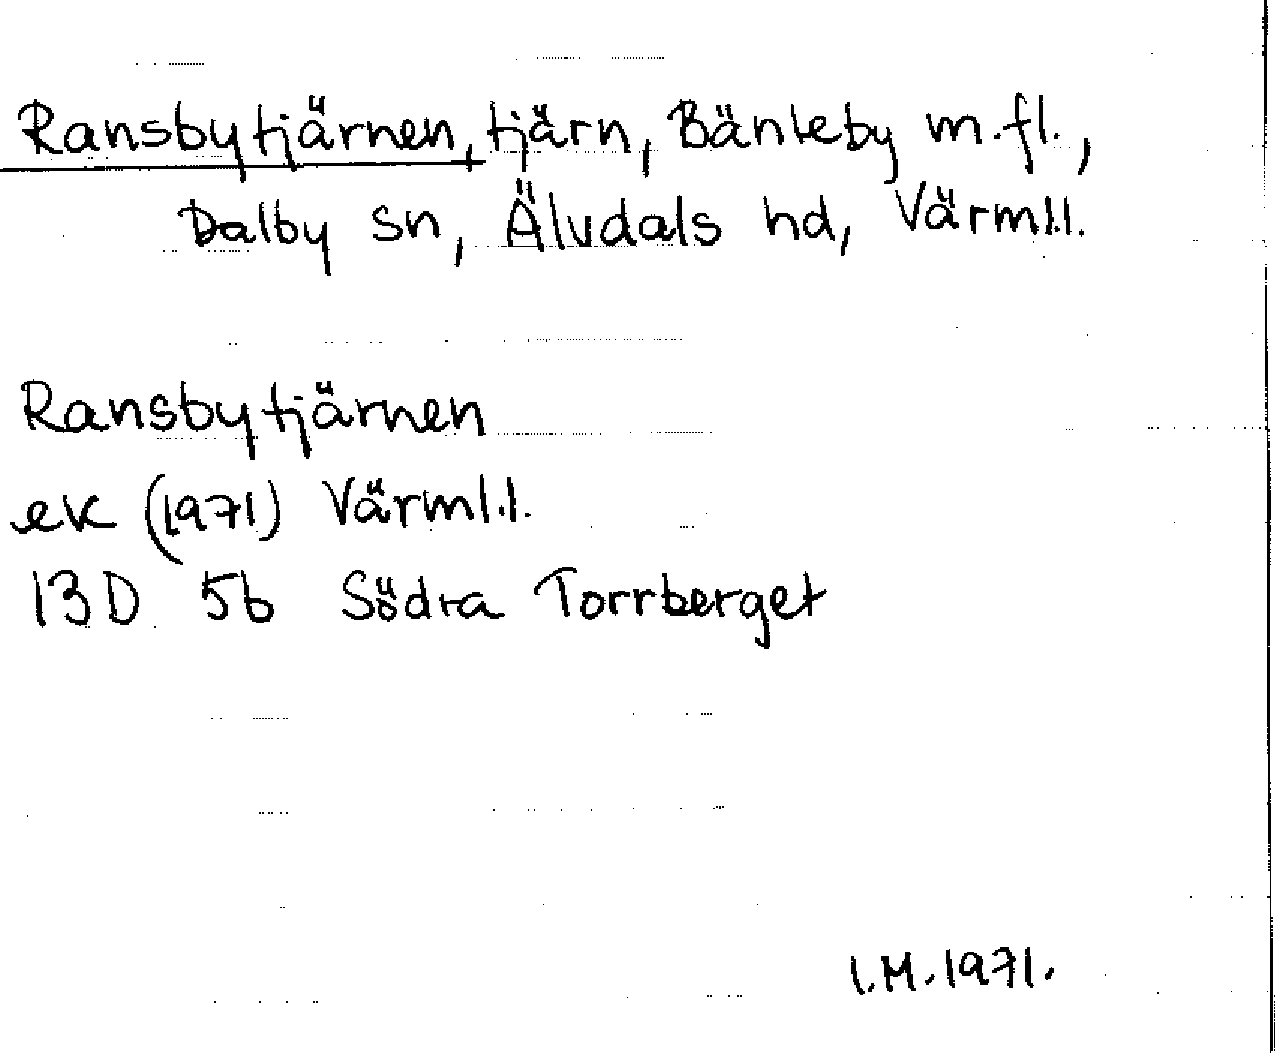 Ransbytjärnen, tjärn, Bänteby m.fl.,
Dalby sn, Älvdals hd, Värml.l.
Ransbytjärnen
ek (1971) Värml.l.
13D 5b Södra Torrberget
I.M.1971.